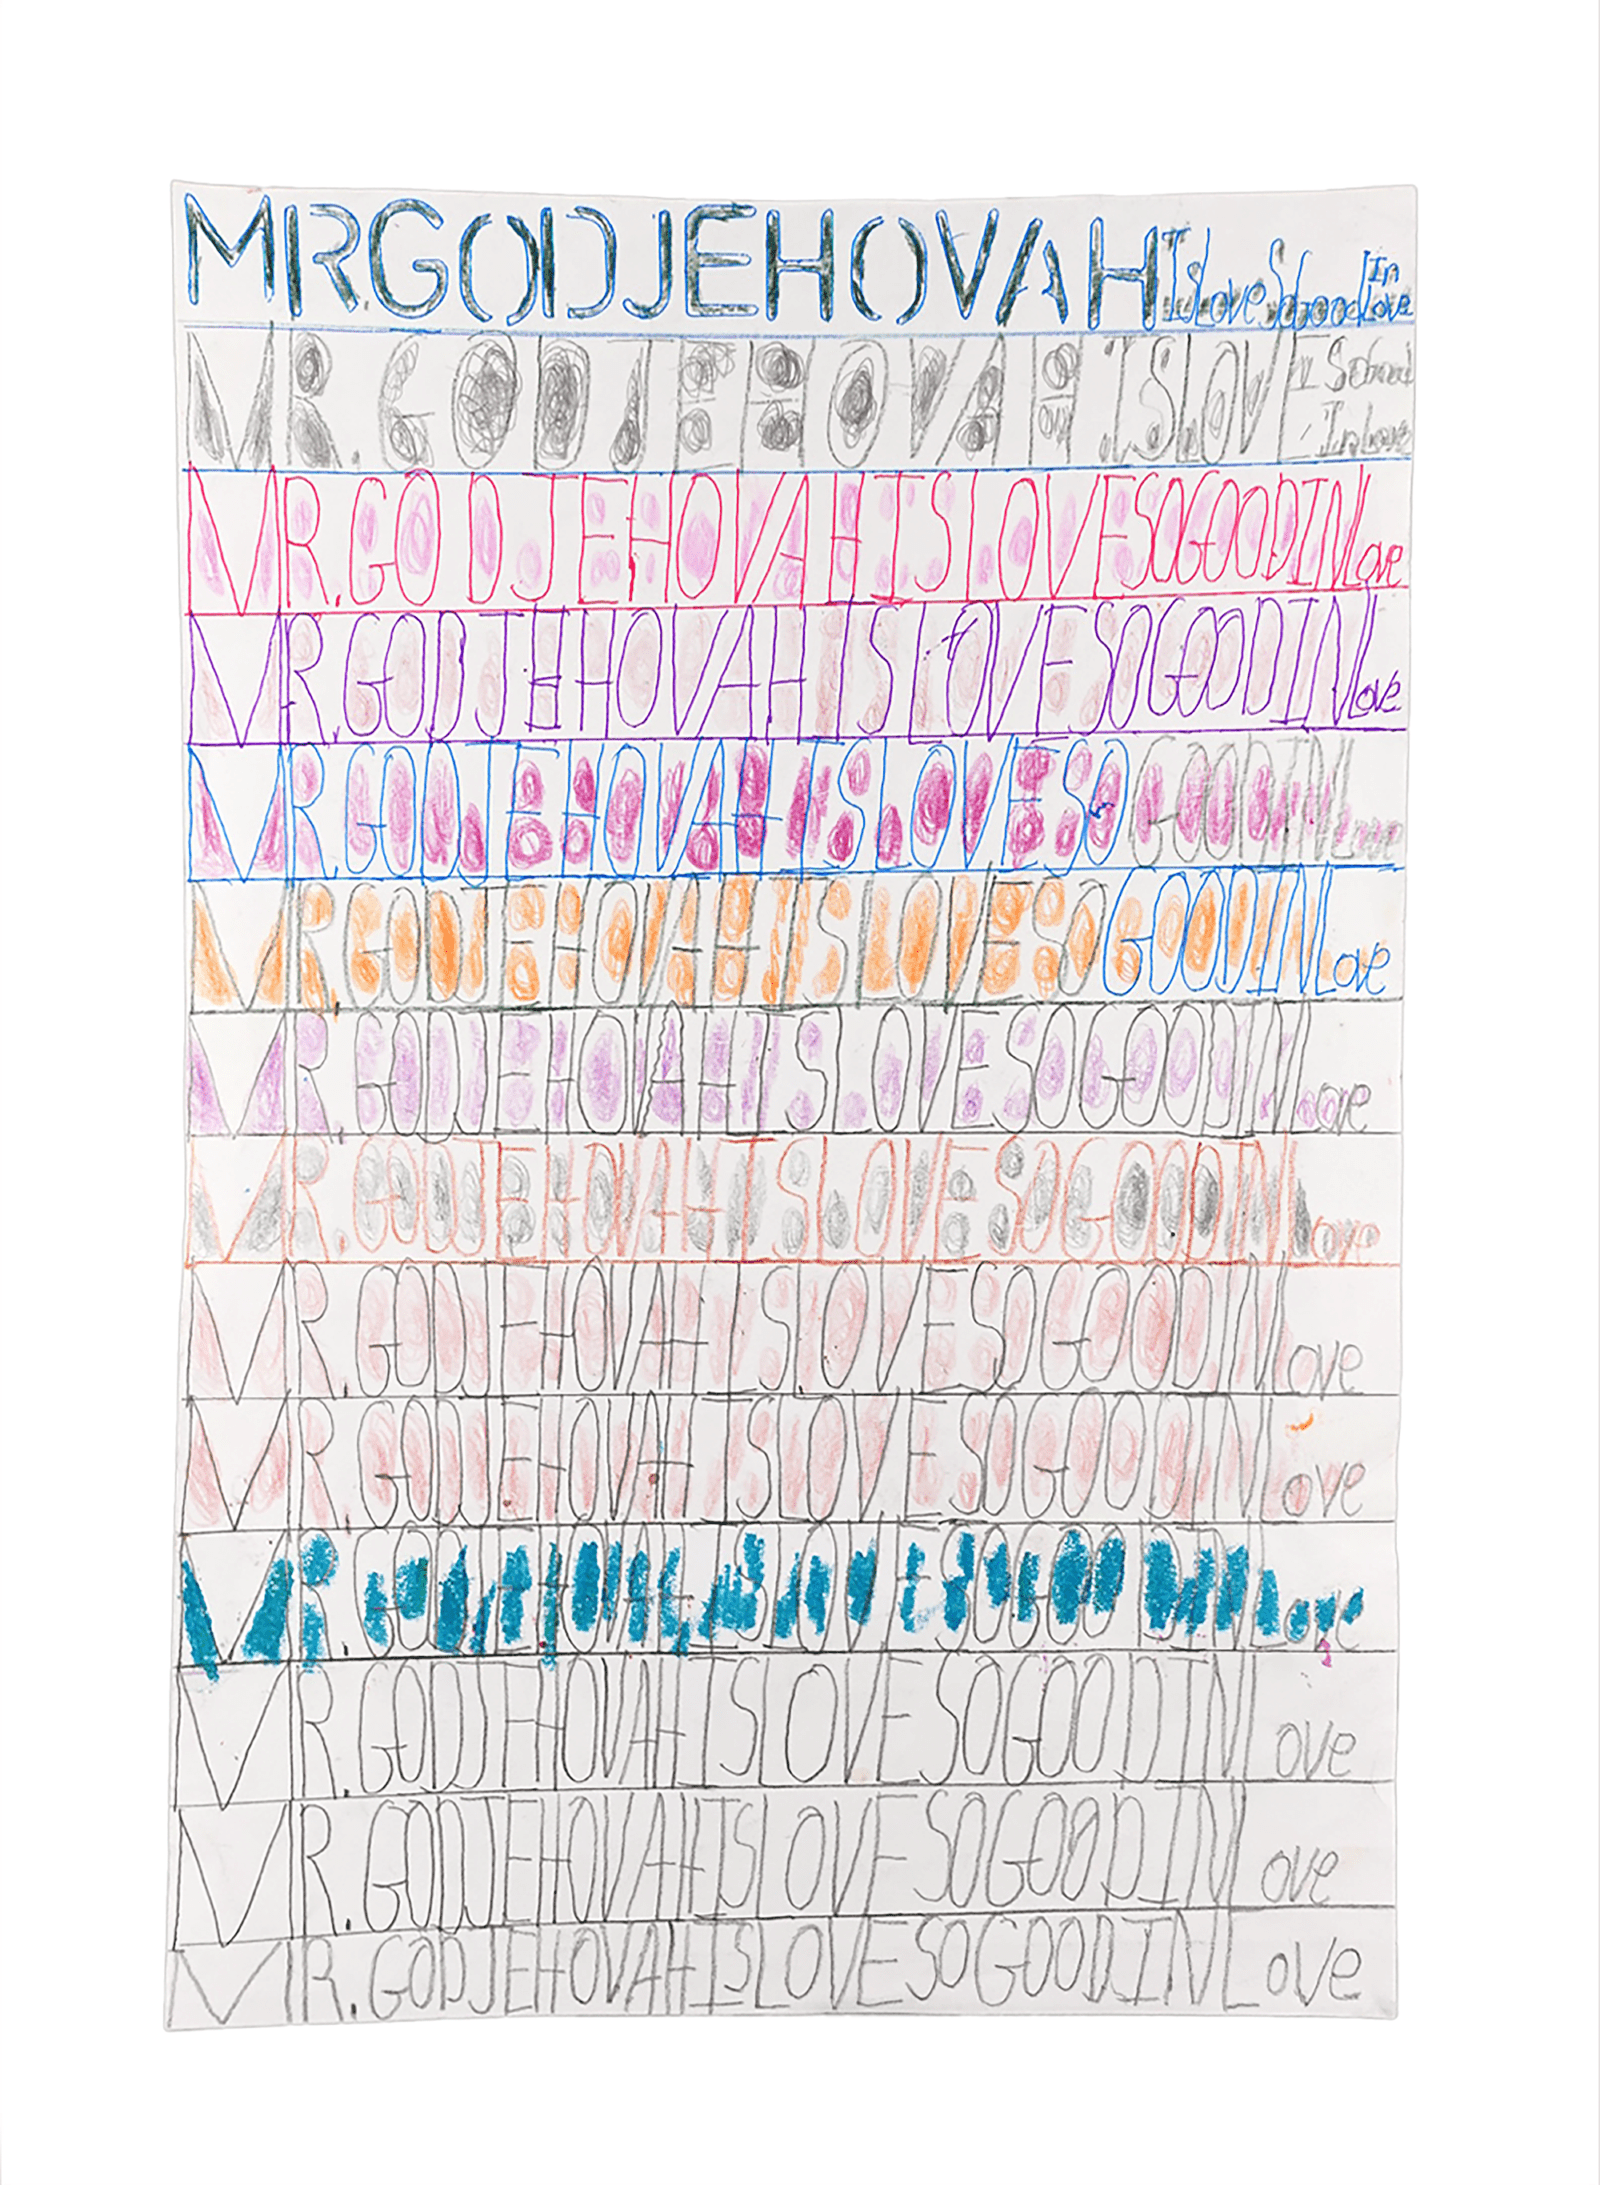 MR GOD JEHOVAH Is Love So Good In Love
MR. GOD JEHOVAH IS LOVE So Good In Love
MR. GOD JEHOVAH IS LOVE SO GOOD IN Love
MR. GOD JEHOVAH IS LOVE SO GOOD IN Love
MR. GOD JEHOVAH IS LOVE SO GOOD IN Love
MR. GOD JEHOVAH IS LOVE SO GOOD IN Love
MR. GOD JEHOVAH IS LOVE SO GOOD IN Love
MR. GOD JEHOVAH IS LOVE SO GOOD IN Love
MR. GOD JEHOVAH IS LOVE SO GOOD IN Love
MR. GOD JEHOVAH IS LOVE SO GOOD IN Love
MR. GOD JEHOVAH IS LOVE SO GOOD IN Love
MR. GOD JEHOVAH IS LOVE SO GOOD IN Love
MR. GOD JEHOVAH IS LOVE SO GOOD IN Love
MR. GOD JEHOVAH IS LOVE SO GOOD IN Love